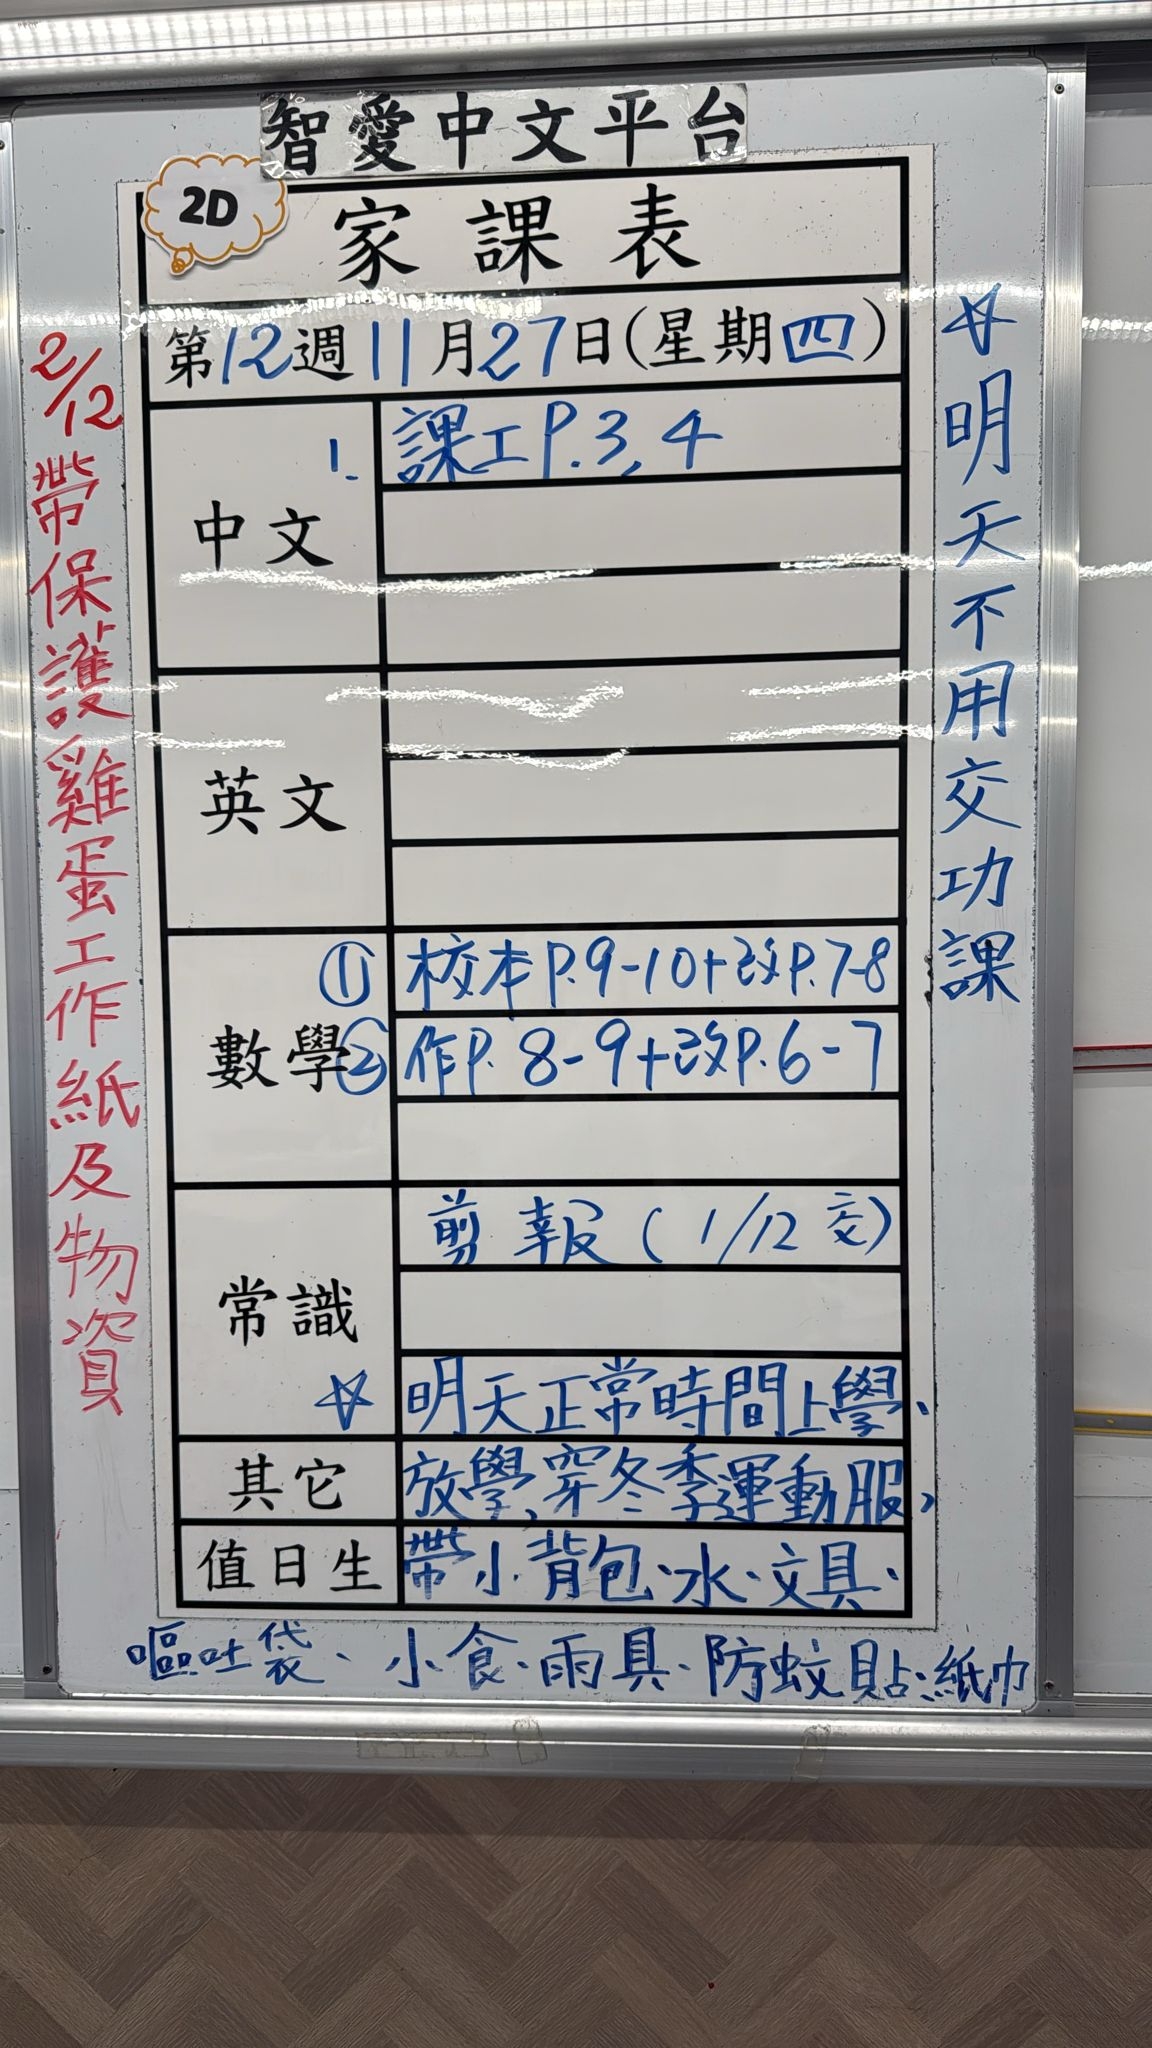 智愛中文平台
2D
家課表
第12週11月27日(星期四)
中文
1. 課工P.3,4
英文
數學
① 校本P.9-10+改P.7-8
② 作P.8-9+改P.6-7
常識
剪報(1/12交)
☆明天正常時間上學、
其它
放學,穿冬季運動服,
值日生
帶小背包、水、文具、
嘔吐袋、小食、雨具、防蚊貼、紙巾
2/12帶保護雞蛋工作紙及物資
☆明天不用交功課